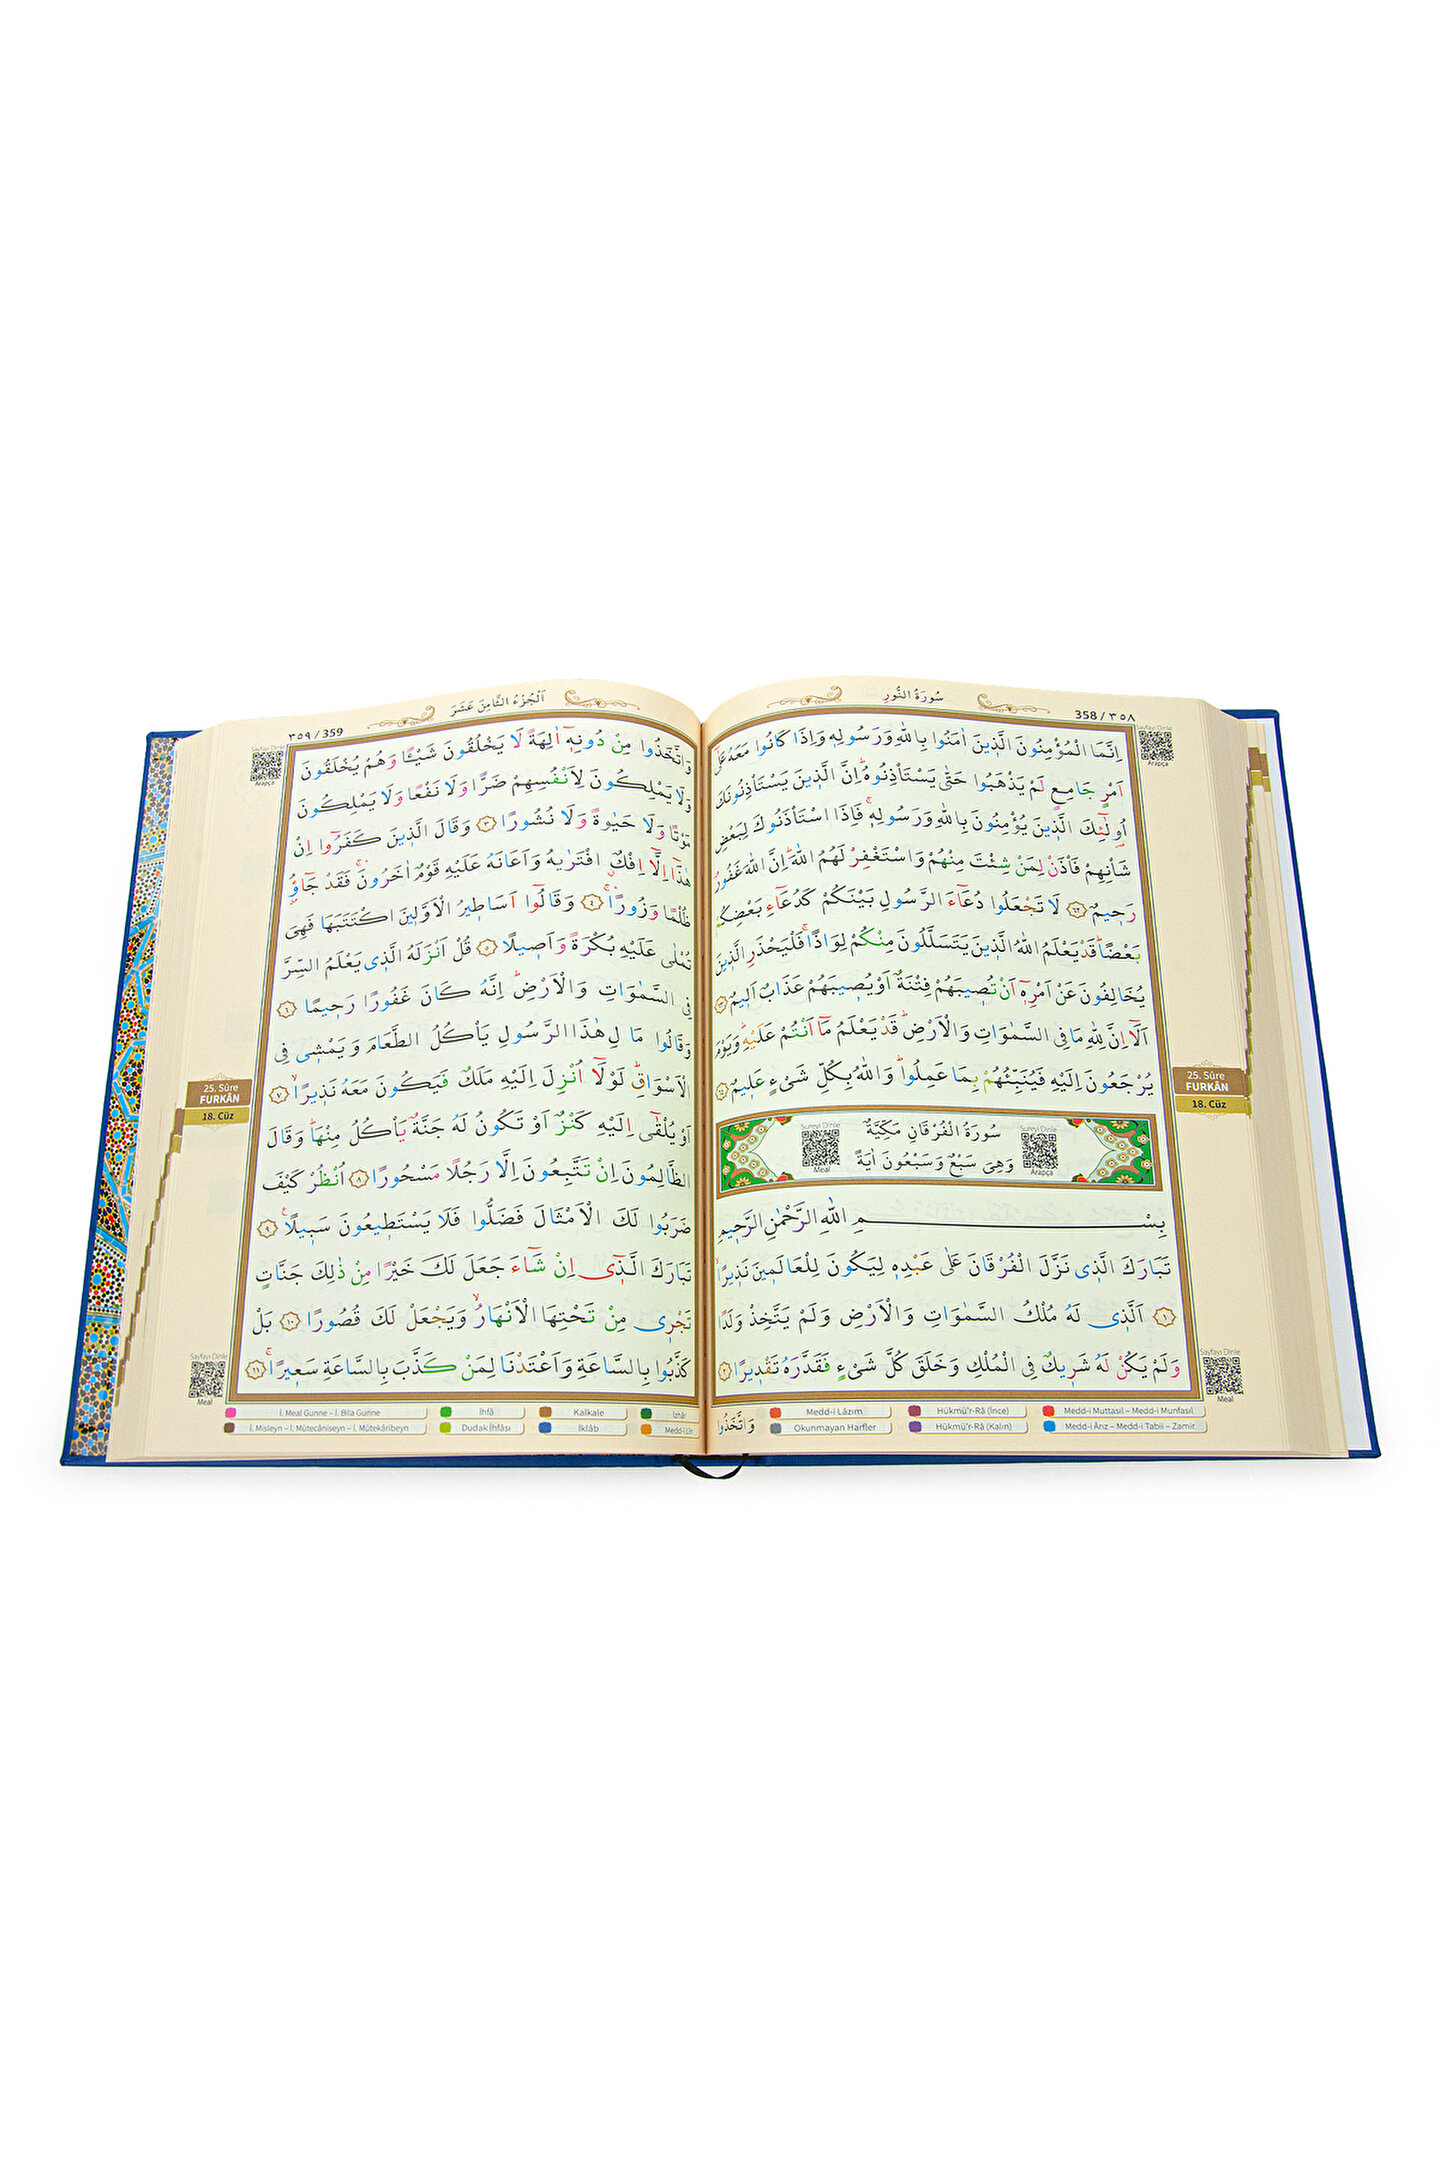 سُورَةُ النُّورِ
358 / ٣٥٨
Sayfayı Dinle
Arapça
اِنَّمَا الْمُؤْمِنُونَ الَّذ۪ينَ اٰمَنُوا بِاللّٰهِ وَرَسُولِه۪ وَاِذَا كَانُوا مَعَهُ عَلٰٓى
اَمْرٍ جَامِعٍ لَمْ يَذْهَبُوا حَتّٰى يَسْتَأْذِنُوهُۜ اِنَّ الَّذ۪ينَ يَسْتَأْذِنُونَكَ
اُو۬لٰٓئِكَ الَّذ۪ينَ يُؤْمِنُونَ بِاللّٰهِ وَرَسُولِه۪ۚ فَاِذَا اسْتَأْذَنُوكَ لِبَعْضِ
شَأْنِهِمْ فَأْذَنْ لِمَنْ شِئْتَ مِنْهُمْ وَاسْتَغْفِرْ لَهُمُ اللّٰهَۜ اِنَّ اللّٰهَ غَفُورٌ
رَح۪يمٌ ﴿٦٢﴾ لَا تَجْعَلُوا دُعَٓاءَ الرَّسُولِ بَيْنَكُمْ كَدُعَٓاءِ بَعْضِكُمْ
بَعْضًاۜ قَدْ يَعْلَمُ اللّٰهُ الَّذ۪ينَ يَتَسَلَّلُونَ مِنْكُمْ لِوَاذًاۚ فَلْيَحْذَرِ الَّذ۪ينَ
يُخَالِفُونَ عَنْ اَمْرِه۪ٓ اَنْ تُص۪يبَهُمْ فِتْنَةٌ اَوْ يُص۪يبَهُمْ عَذَابٌ اَل۪يمٌ ﴿٦٣﴾
اَلَٓا اِنَّ لِلّٰهِ مَا فِي السَّمٰوَاتِ وَالْاَرْضِۜ قَدْ يَعْلَمُ مَٓا اَنْتُمْ عَلَيْهِۜ وَيَوْمَ
يُرْجَعُونَ اِلَيْهِ فَيُنَبِّئُهُمْ بِمَا عَمِلُواۜ وَاللّٰهُ بِكُلِّ شَيْءٍ عَل۪يمٌ ﴿٦٤﴾
Sureyi Dinle
Arapça
سُورَةُ الْفُرْقَانِ مَكِّيَّةٌ
وَهِيَ سَبْعٌ وَسَبْعُونَ اٰيَةً
Sureyi Dinle
Meal
بِسْمِ اللّٰهِ الرَّحْمٰنِ الرَّح۪يمِ
تَبَارَكَ الَّذ۪ي نَزَّلَ الْفُرْقَانَ عَلٰى عَبْدِه۪ لِيَكُونَ لِلْعَالَم۪ينَ نَذ۪يرًاۙ
﴿١﴾ اَلَّذ۪ي لَهُ مُلْكُ السَّمٰوَاتِ وَالْاَرْضِ وَلَمْ يَتَّخِذْ وَلَدًا
وَلَمْ يَكُنْ لَهُ شَر۪يكٌ فِي الْمُلْكِ وَخَلَقَ كُلَّ شَيْءٍ فَقَدَّرَهُ تَقْد۪يرًا ﴿٢﴾
وَاتَّخَذُوا
25. Sûre
FURKÂN
18. Cüz
Sayfayı Dinle
Meal
Medd-i Lâzım
Hükmü'r-Râ (İnce)
Medd-i Muttasıl – Medd-i Munfasıl
Okunmayan Harfler
Hükmü'r-Râ (Kalın)
Medd-i Ârız – Medd-i Tabiî – Zamir
اَلْجُزْءُ الثَّامِنَ عَشَرَ
٣٥٩ / 359
Sayfayı Dinle
Arapça
وَاتَّخَذُوا مِنْ دُونِه۪ٓ اٰلِهَةً لَا يَخْلُقُونَ شَيْـًٔا وَهُمْ يُخْلَقُونَ
وَلَا يَمْلِكُونَ لِاَنْفُسِهِمْ ضَرًّا وَلَا نَفْعًا وَلَا يَمْلِكُونَ
مَوْتًا وَلَا حَيٰوةً وَلَا نُشُورًا ﴿٣﴾ وَقَالَ الَّذ۪ينَ كَفَرُٓوا اِنْ
هٰذَٓا اِلَّٓا اِفْكٌۨ افْتَرٰيهُ وَاَعَانَهُ عَلَيْهِ قَوْمٌ اٰخَرُونَۚۛ فَقَدْ جَٓاؤُ۫
ظُلْمًا وَزُورًاۚۛ ﴿٤﴾ وَقَالُٓوا اَسَاط۪يرُ الْاَوَّل۪ينَ اكْتَتَبَهَا فَهِيَ
تُمْلٰى عَلَيْهِ بُكْرَةً وَاَص۪يلًا ﴿٥﴾ قُلْ اَنْزَلَهُ الَّذ۪ي يَعْلَمُ السِّرَّ
فِي السَّمٰوَاتِ وَالْاَرْضِۜ اِنَّهُ كَانَ غَفُورًا رَح۪يمًا ﴿٦﴾
وَقَالُوا مَا لِ هٰذَا الرَّسُولِ يَأْكُلُ الطَّعَامَ وَيَمْش۪ي فِي
الْاَسْوَاقِۜ لَوْلَٓا اُنْزِلَ اِلَيْهِ مَلَكٌ فَيَكُونَ مَعَهُ نَذ۪يرًاۙ ﴿٧﴾
اَوْ يُلْقٰٓى اِلَيْهِ كَنْزٌ اَوْ تَكُونُ لَهُ جَنَّةٌ يَأْكُلُ مِنْهَاۜ وَقَالَ
الظَّالِمُونَ اِنْ تَتَّبِعُونَ اِلَّا رَجُلًا مَسْحُورًا ﴿٨﴾ اُنْظُرْ كَيْفَ
ضَرَبُوا لَكَ الْاَمْثَالَ فَضَلُّوا فَلَا يَسْتَط۪يعُونَ سَب۪يلًا۟ ﴿٩﴾
تَبَارَكَ الَّذ۪ٓي اِنْ شَٓاءَ جَعَلَ لَكَ خَيْرًا مِنْ ذٰلِكَ جَنَّاتٍ
تَجْر۪ي مِنْ تَحْتِهَا الْاَنْهَارُۙ وَيَجْعَلْ لَكَ قُصُورًا ﴿١٠﴾ بَلْ
كَذَّبُوا بِالسَّاعَةِ وَاَعْتَدْنَا لِمَنْ كَذَّبَ بِالسَّاعَةِ سَع۪يرًاۚ ﴿١١﴾
25. Sûre
FURKÂN
18. Cüz
Sayfayı Dinle
Meal
İ. Meal Gunne – İ. Bila Gunne
İhfâ
Kalkale
İzhâr
İ. Misleyn – İ. Mütecâniseyn – İ. Mütekâribeyn
Dudak İhfâsı
İklâb
Medd-i Lîn